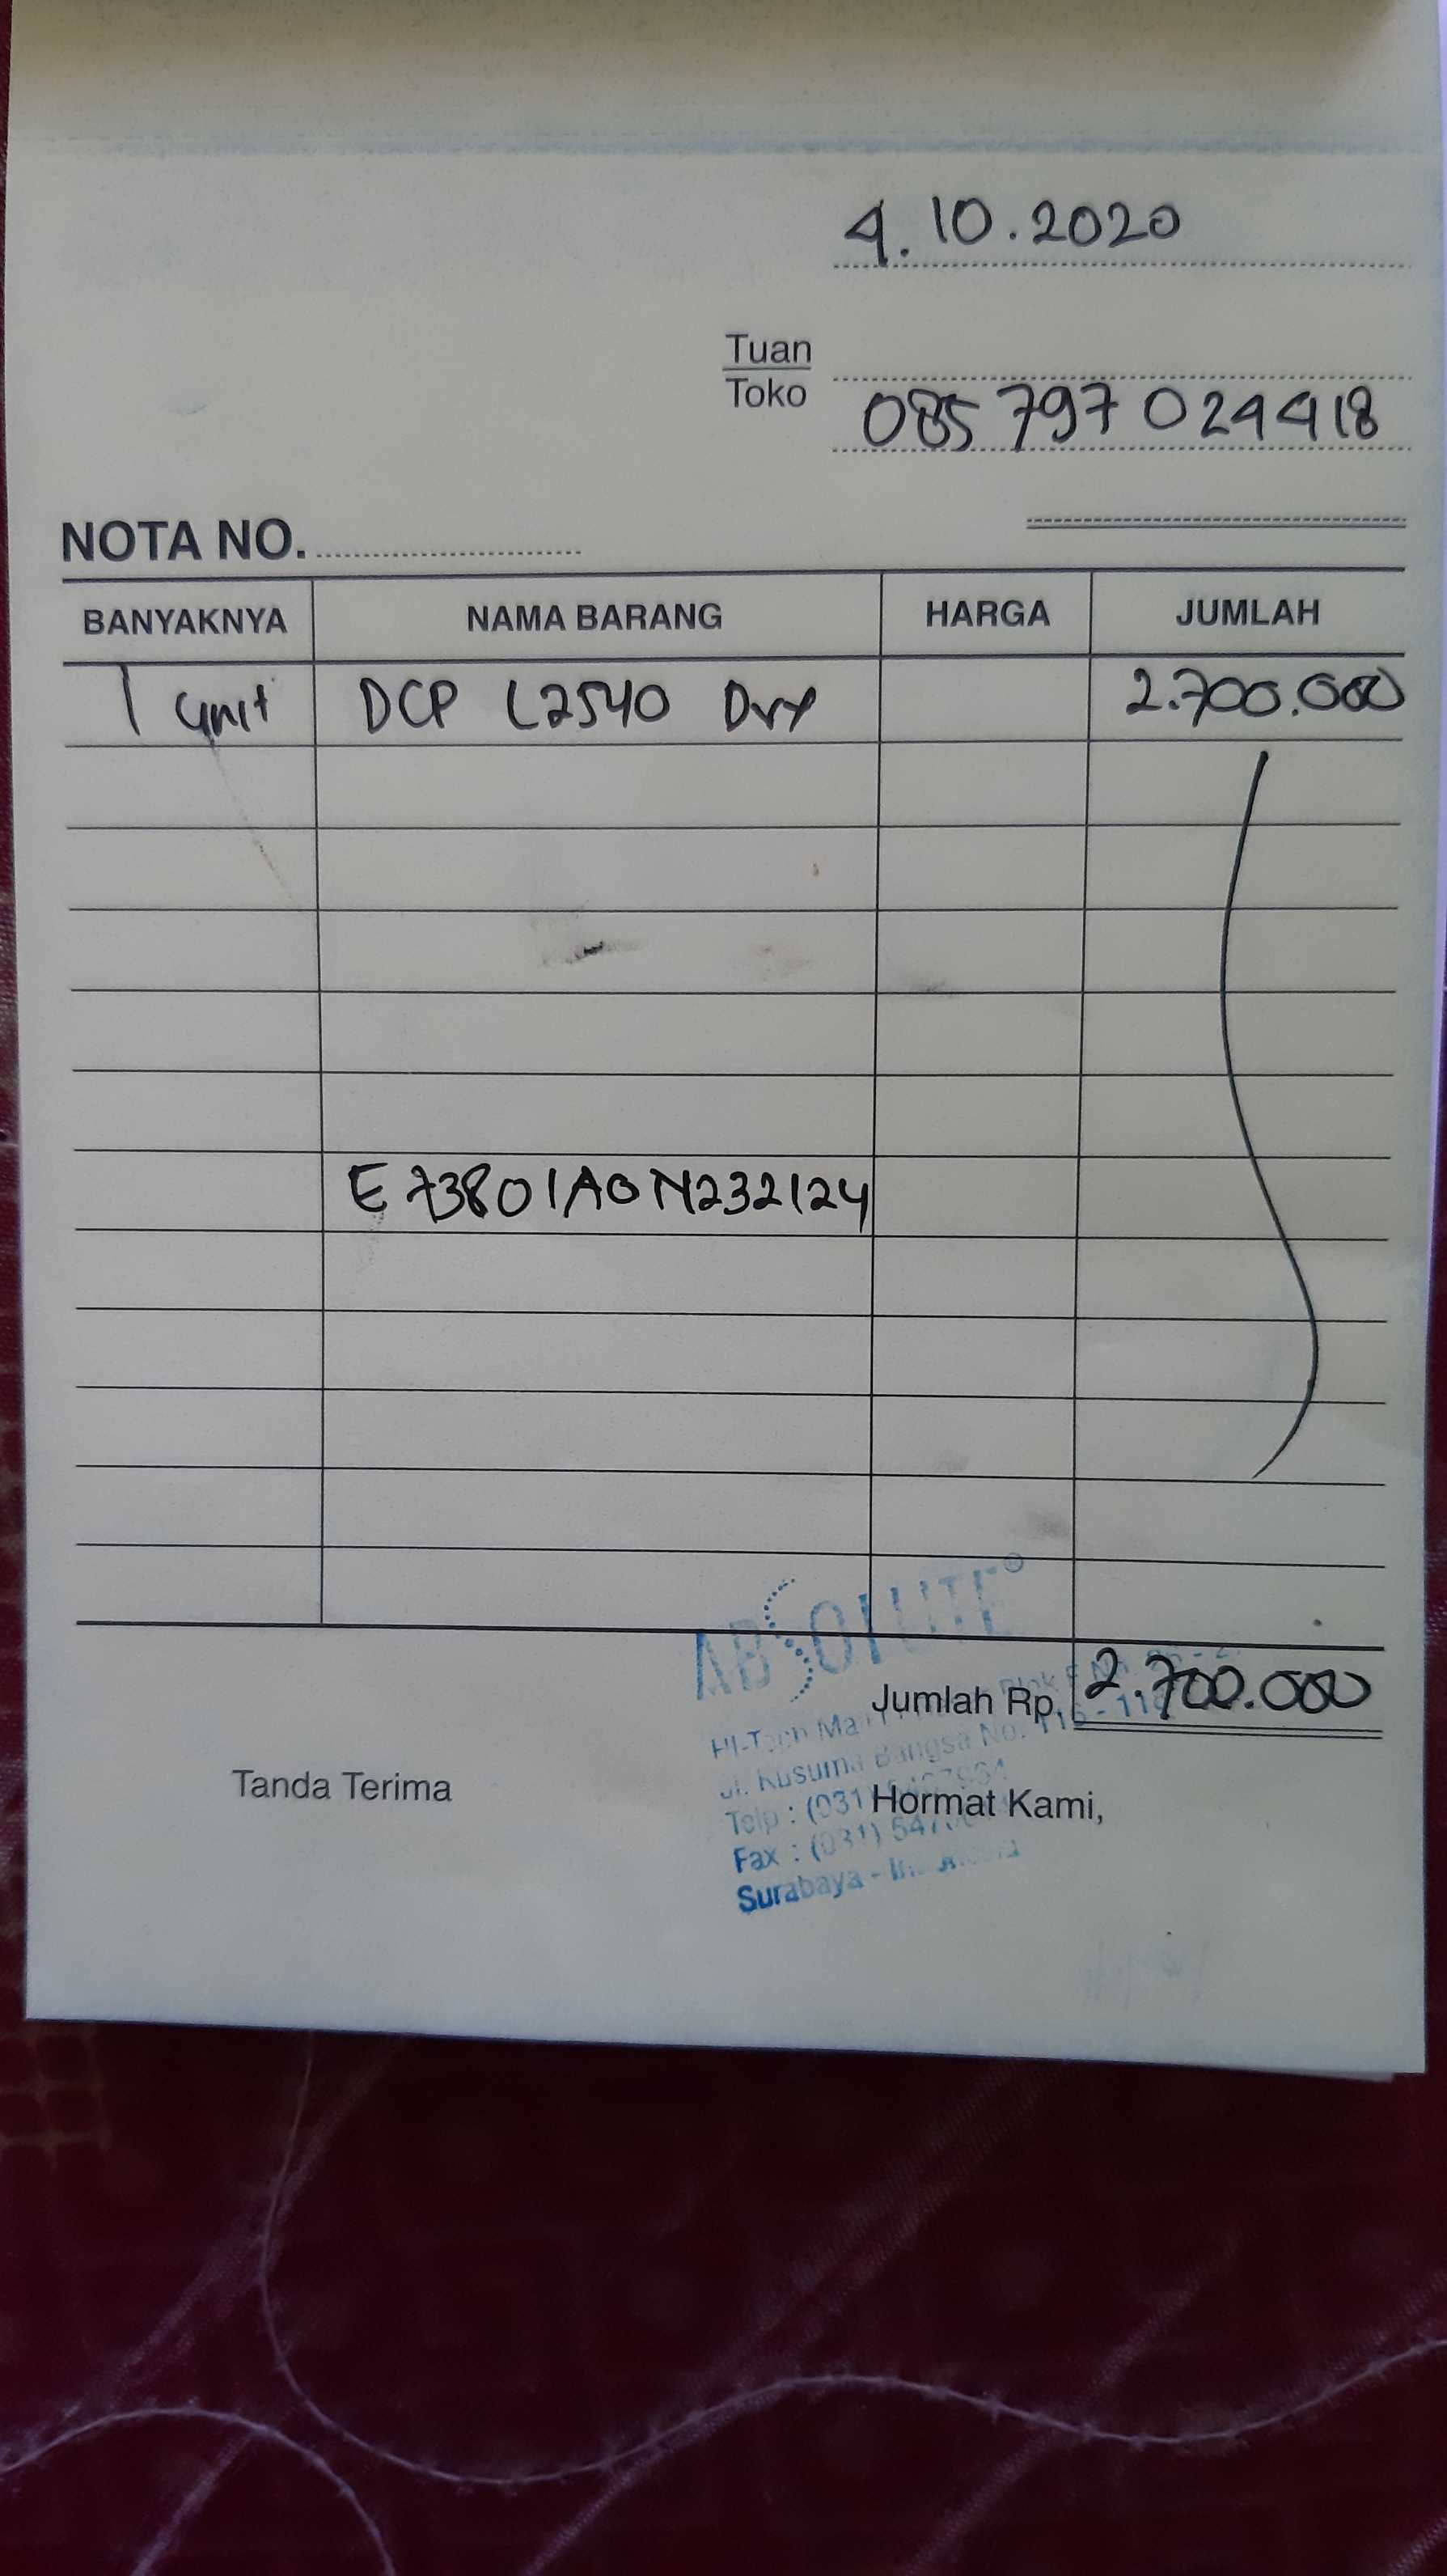 4.10.2020
Tuan
Toko
085 797 024418
NOTA NO.
BANYAKNYA NAMA BARANG HARGA JUMLAH
1 unit DCP L2540 Dw 2.700.000
E73801A0N232124
ABSOLUTE®
Jumlah Rp. 2.700.000
HI-Tech Mall
Jl. Kusuma Bangsa No. 116 - 118
Tanda Terima
Telp : (031)
Hormat Kami,
Fax : (031)
Surabaya - Indonesia